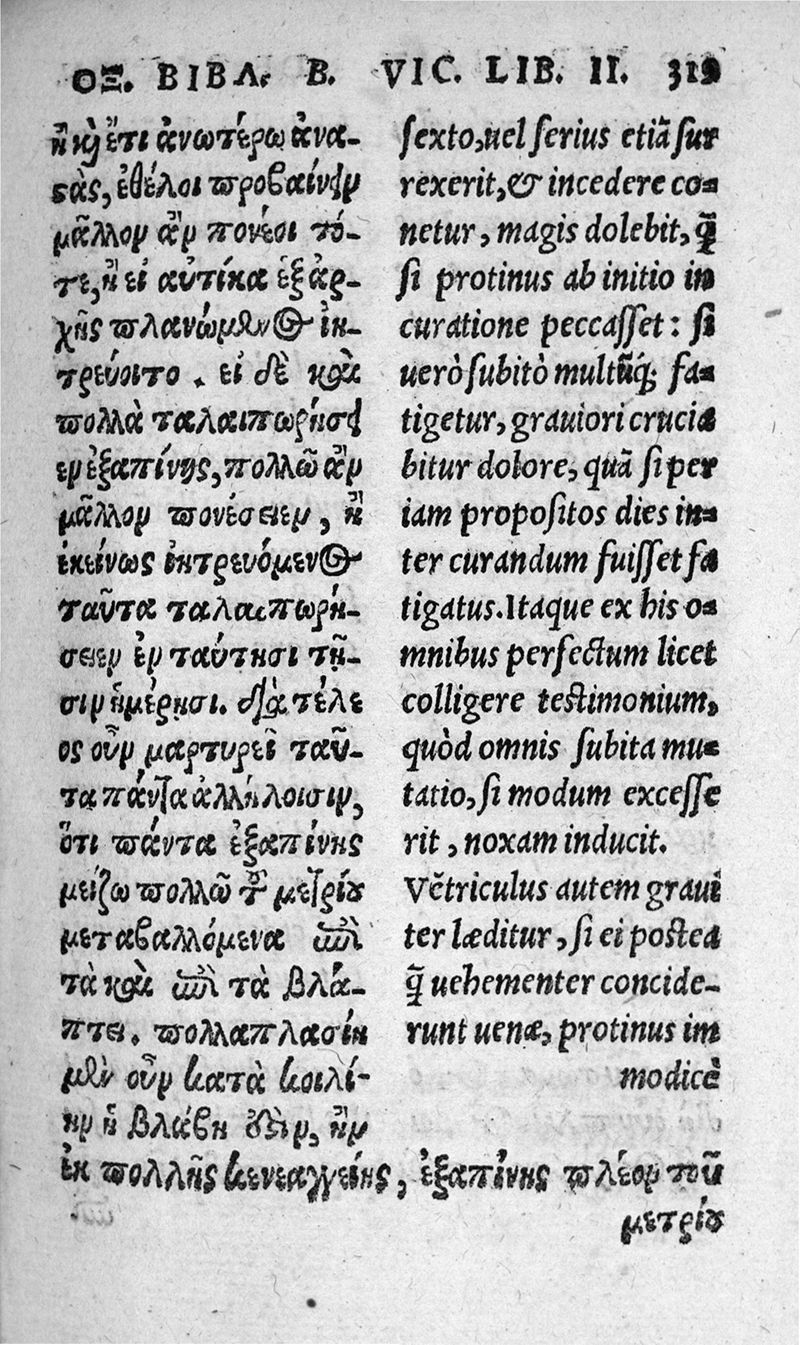 ΟΞ. ΒΙΒΛ. Β. VIC. LIB. II. 319
ἢ καὶ ἔτι ἀνωτέρω ἀνα-
στὰς, ἐθέλοι προβαίνειν
μᾶλλον ἂν πονέσοι τό-
τε, ἢ εἰ αὐτίκα ἐξ ἀρ-
χῆς πλανώμενος ἰη-
τρεύοιτο. εἰ δὲ καὶ
πολλὰ ταλαιπωρήσει
εν ἐξαπίνης, πολλῶ ἂν
μᾶλλον πονέσειεν, ἢ
ἐκείνως ἰητρευόμενος
ταῦτα ταλαιπωρή-
σειεν ἐν ταύτησι τῇ-
σιν ἡμέρῃσι. διὰ τέλε
ος οὖν μαρτυρεῖ ταῦ-
τα πάντα ἀλλήλοισιν,
ὅτι πάντα ἐξαπίνης
μείζω πολλῶ τοῦ μετρίου
μεταβαλλόμενα ἐπὶ
τὰ καὶ ἐπὶ τὰ βλά-
πτει. πολλαπλασίη
μὲν οὖν κατὰ κοιλί-
ην ἡ βλάβη ἐστὶν, ἢν
ἐκ πολλῆς κενεαγγείης, ἐξαπίνης πλέον τοῦ
μετρίου
sexto, uel serius etiã sur
rexerit, & incedere co-
netur, magis dolebit, q̃
si protinus ab initio in
curatione peccasset: si
uerò subitò multũq; fa-
tigetur, grauiori crucia
bitur dolore, quã si per
iam propositos dies in-
ter curandum fuisset fa
tigatus. Itaque ex his o-
mnibus perfectum licet
colligere testimonium,
quòd omnis subita mu-
tatio, si modum excesse
rit, noxam inducit.
Vẽtriculus autem graui
ter læditur, si ei postea
q̃ uehementer concide-
runt uenæ, protinus im
modicè